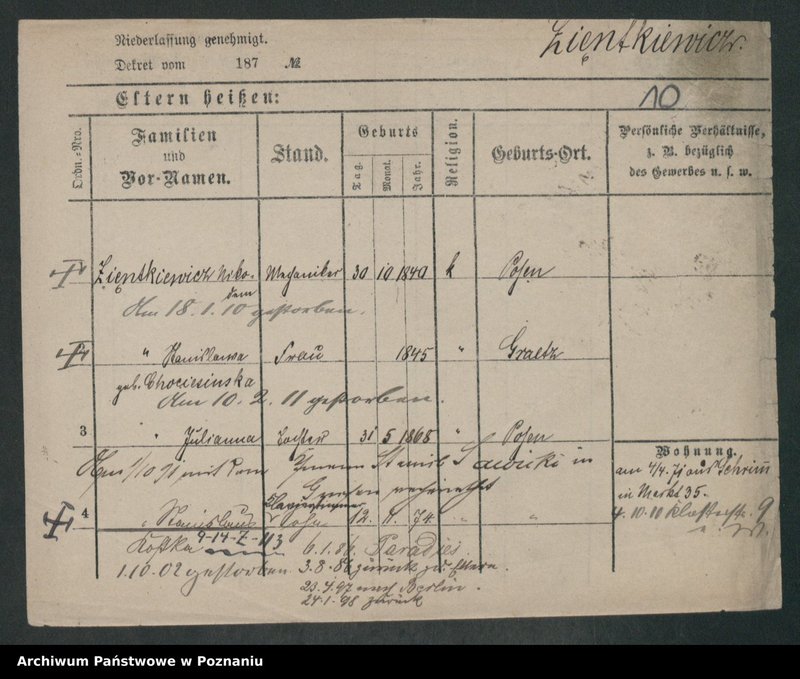 Niederlassung genehmigt.
Zientkiewicz.
Dekret vom 187 №
Eltern heißen:
10
Ordn.-Nro.
Familien und Vor-Namen.
Stand.
Geburts
Tag.
Monat.
Jahr.
Religion.
Geburts-Ort.
Persönliche Verhältnisse, z. B. bezüglich des Gewerbes u. s. w.
Zientkiewicz Niko- Mechaniker 30 10 1840 k Posen
dem
Am 18.1.10 gestorben.
" Stanislawa Frau 1845 " Graetz
geb. Chociesinska
Am 10.2.11 gestorben.
3 " Julianna Tochter 31 5 1868 " Posen
Am 1/10 91 mit dem Stanisl Sawicki in
Wohnung.
am 4/4. 71 aus Schrimm
in Markt 35.
4 " Stanislaus Sohn 12. 11. 74 " "
4.10.11 9
Kostka 9-14-Z-113 6.1.86 Paradies
1.10.02 gestorben 3.8.86 zurück zu Eltern.
23.4.97 nach Berlin.
24.1.98 zurück
Archiwum Państwowe w Poznaniu